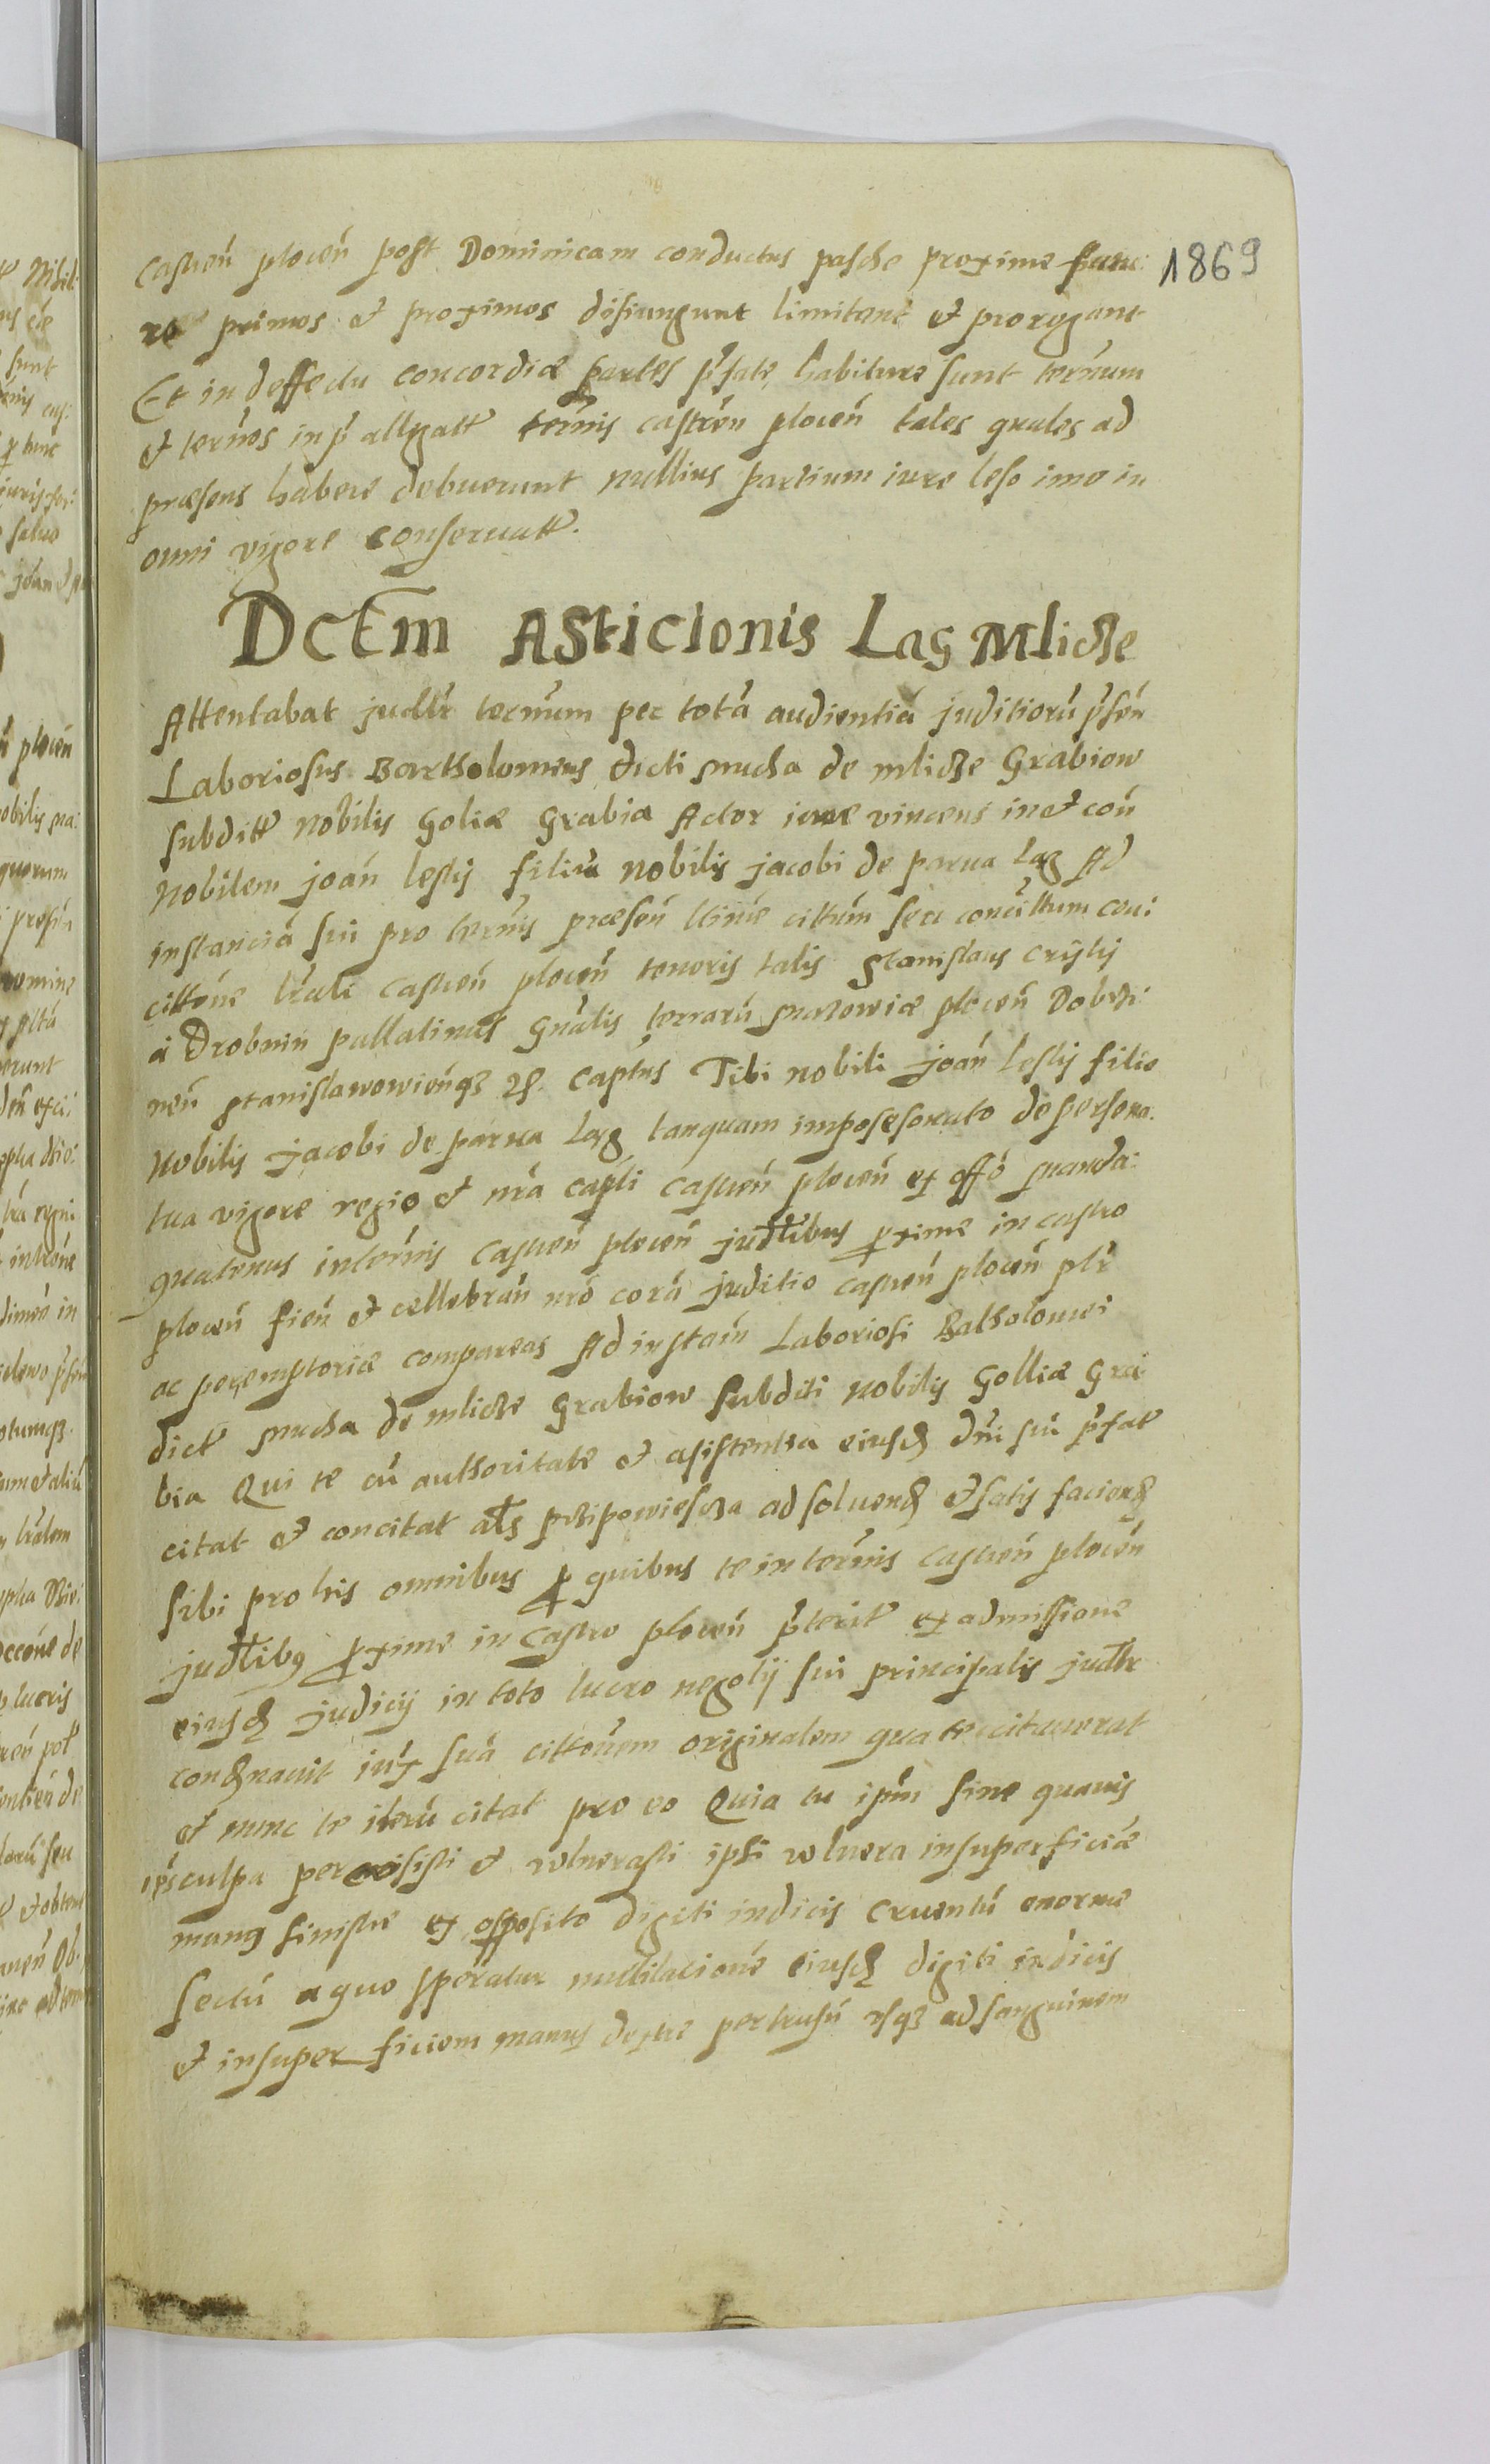 castreń plocen post Dominicam conductus pasche proxime func:
re primos et proximos disiungunt limitant et prorogant
Et in deffectu concordiæ partes pr̄fate habiture sunt termum
et termos in pr̄ allgatt termis castren plocen tales quales ad
præsens habere debuerunt nullius partium iure leso imo in
omni vigore conseruatt.
Dctm Asticionis Lag Mlicze
Attentabat judlr termum per totā audientiā juditiorū pr̄sen
Laboriosus Bartholomeus dicti mucha de mlicze Grabiow
subditt nobilis Goliæ Grabia Actor iure vincens in et con
Nobilem joan lestij filiū nobilis jacobi de parua Lag Ad
instanciā sui pro termis præsen ltime cittum seu concittum coui:
cittone lrali castren plocen tenoris talis Stanislaus crijski
a Drobnin pallatinus Gnalis terrarū mazowiæ plocen Dobrzi:
nen Stanislawowienqz zc. Captus Tibi nobili joan lestij filio
Nobilis jacobi de parua Lag tanquam imposesonato de persona.
tua vigore regio et nra capli castren plocen ex offo manda:
quatenus in termis castren plocen judlibus pxime in castro
plocen fien et cellebran nro corā juditio castren plocen plr
ac peremptoriæ compareas Ad instan Laboriosi Batholomei
dict mucha de mlicze Grabiow subditi nobilis Golliæ Gra:
bia Qui te cū authoritate et asistentia eiusd dni sui pr̄fat
citat et concitat als przipowiescza ad soluend et satis faciend
sibi pro his omnibus p quibus te in termis castren plocen
judlibus pxime in castro plocen pr̄terit ex admissione
eiusd judicij in toto lucro negotij sui principalis judlr
condnauit iux suā cittonem originalem qua te citauerat
et nunc te iterū citat pro eo Quia tu ipm sine quauis
ips culpa percusisti et vulnerasti ipsi vulnera in superficiæ
manus sinistre ex opposito digiti indicis cruentū enorme
sectū a quo speratur muttilacione eiusd digiti indicis
et in superficiem manus dextre pertusū usqz ad sanguinem
1869